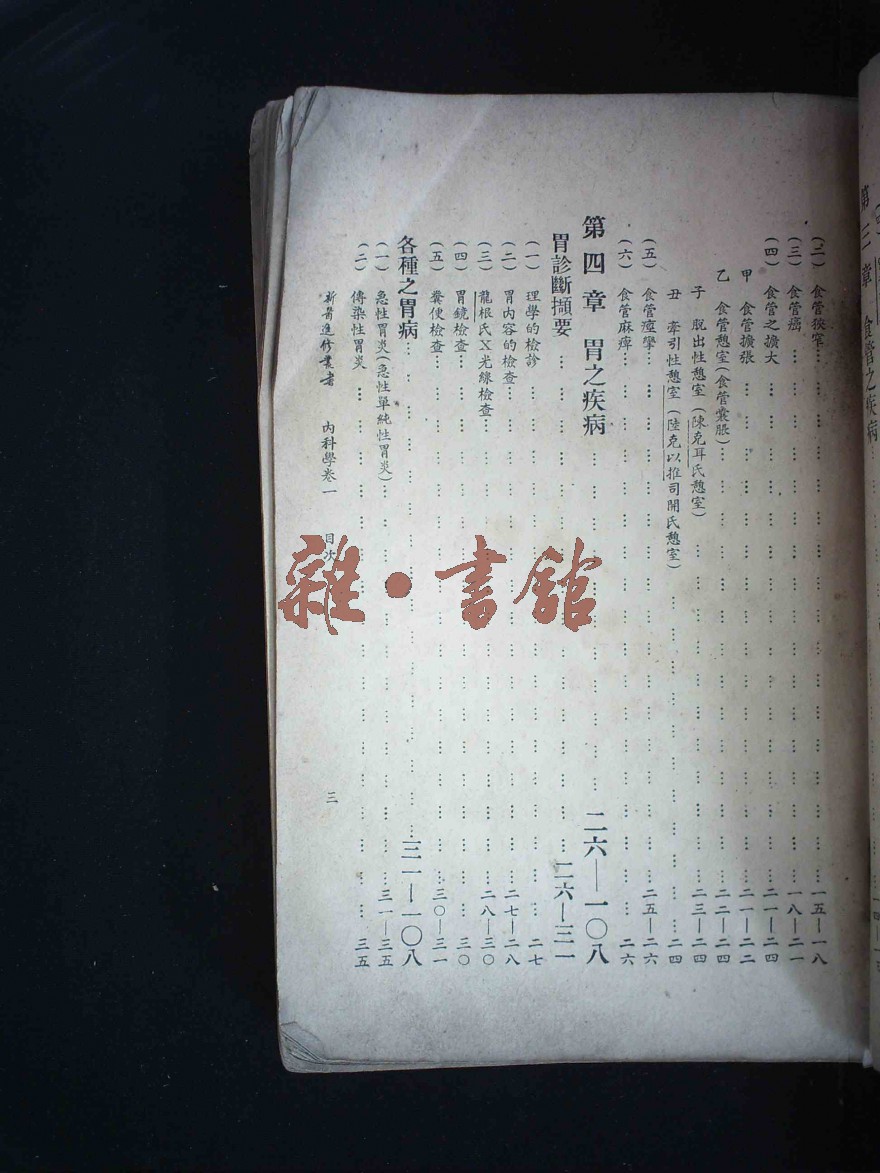 (二) 食管狹窄 一五—一八
(三) 食管癌 一八—二一
(四) 食管之擴大 二一—二四
甲 食管擴張 二一—二二
乙 食管憩室(食管囊脹) 二二—二四
子 脫出性憩室(陳克耳氏憩室) 二三—二四
丑 牽引性憩室(陸克以推司開氏憩室) 二四
(五) 食管痙攣 二五—二六
(六) 食管麻痺 二六
第四章 胃之疾病 二六—一〇八
胃診斷擷要 二六—三一
(一) 理學的檢診 二七
(二) 胃內容的檢查 二七—二八
(三) 龍根氏X光線檢查 二八—三〇
(四) 胃鏡檢查 三〇
(五) 糞便檢查 三〇—三一
各種之胃病 三一—一〇八
(一) 急性胃炎(急性單純性胃炎) 三一—三五
(二) 傳染性胃炎 三五
新醫進修叢書 內科學卷一 目次 三
雜·書館
第三章 食管之疾病